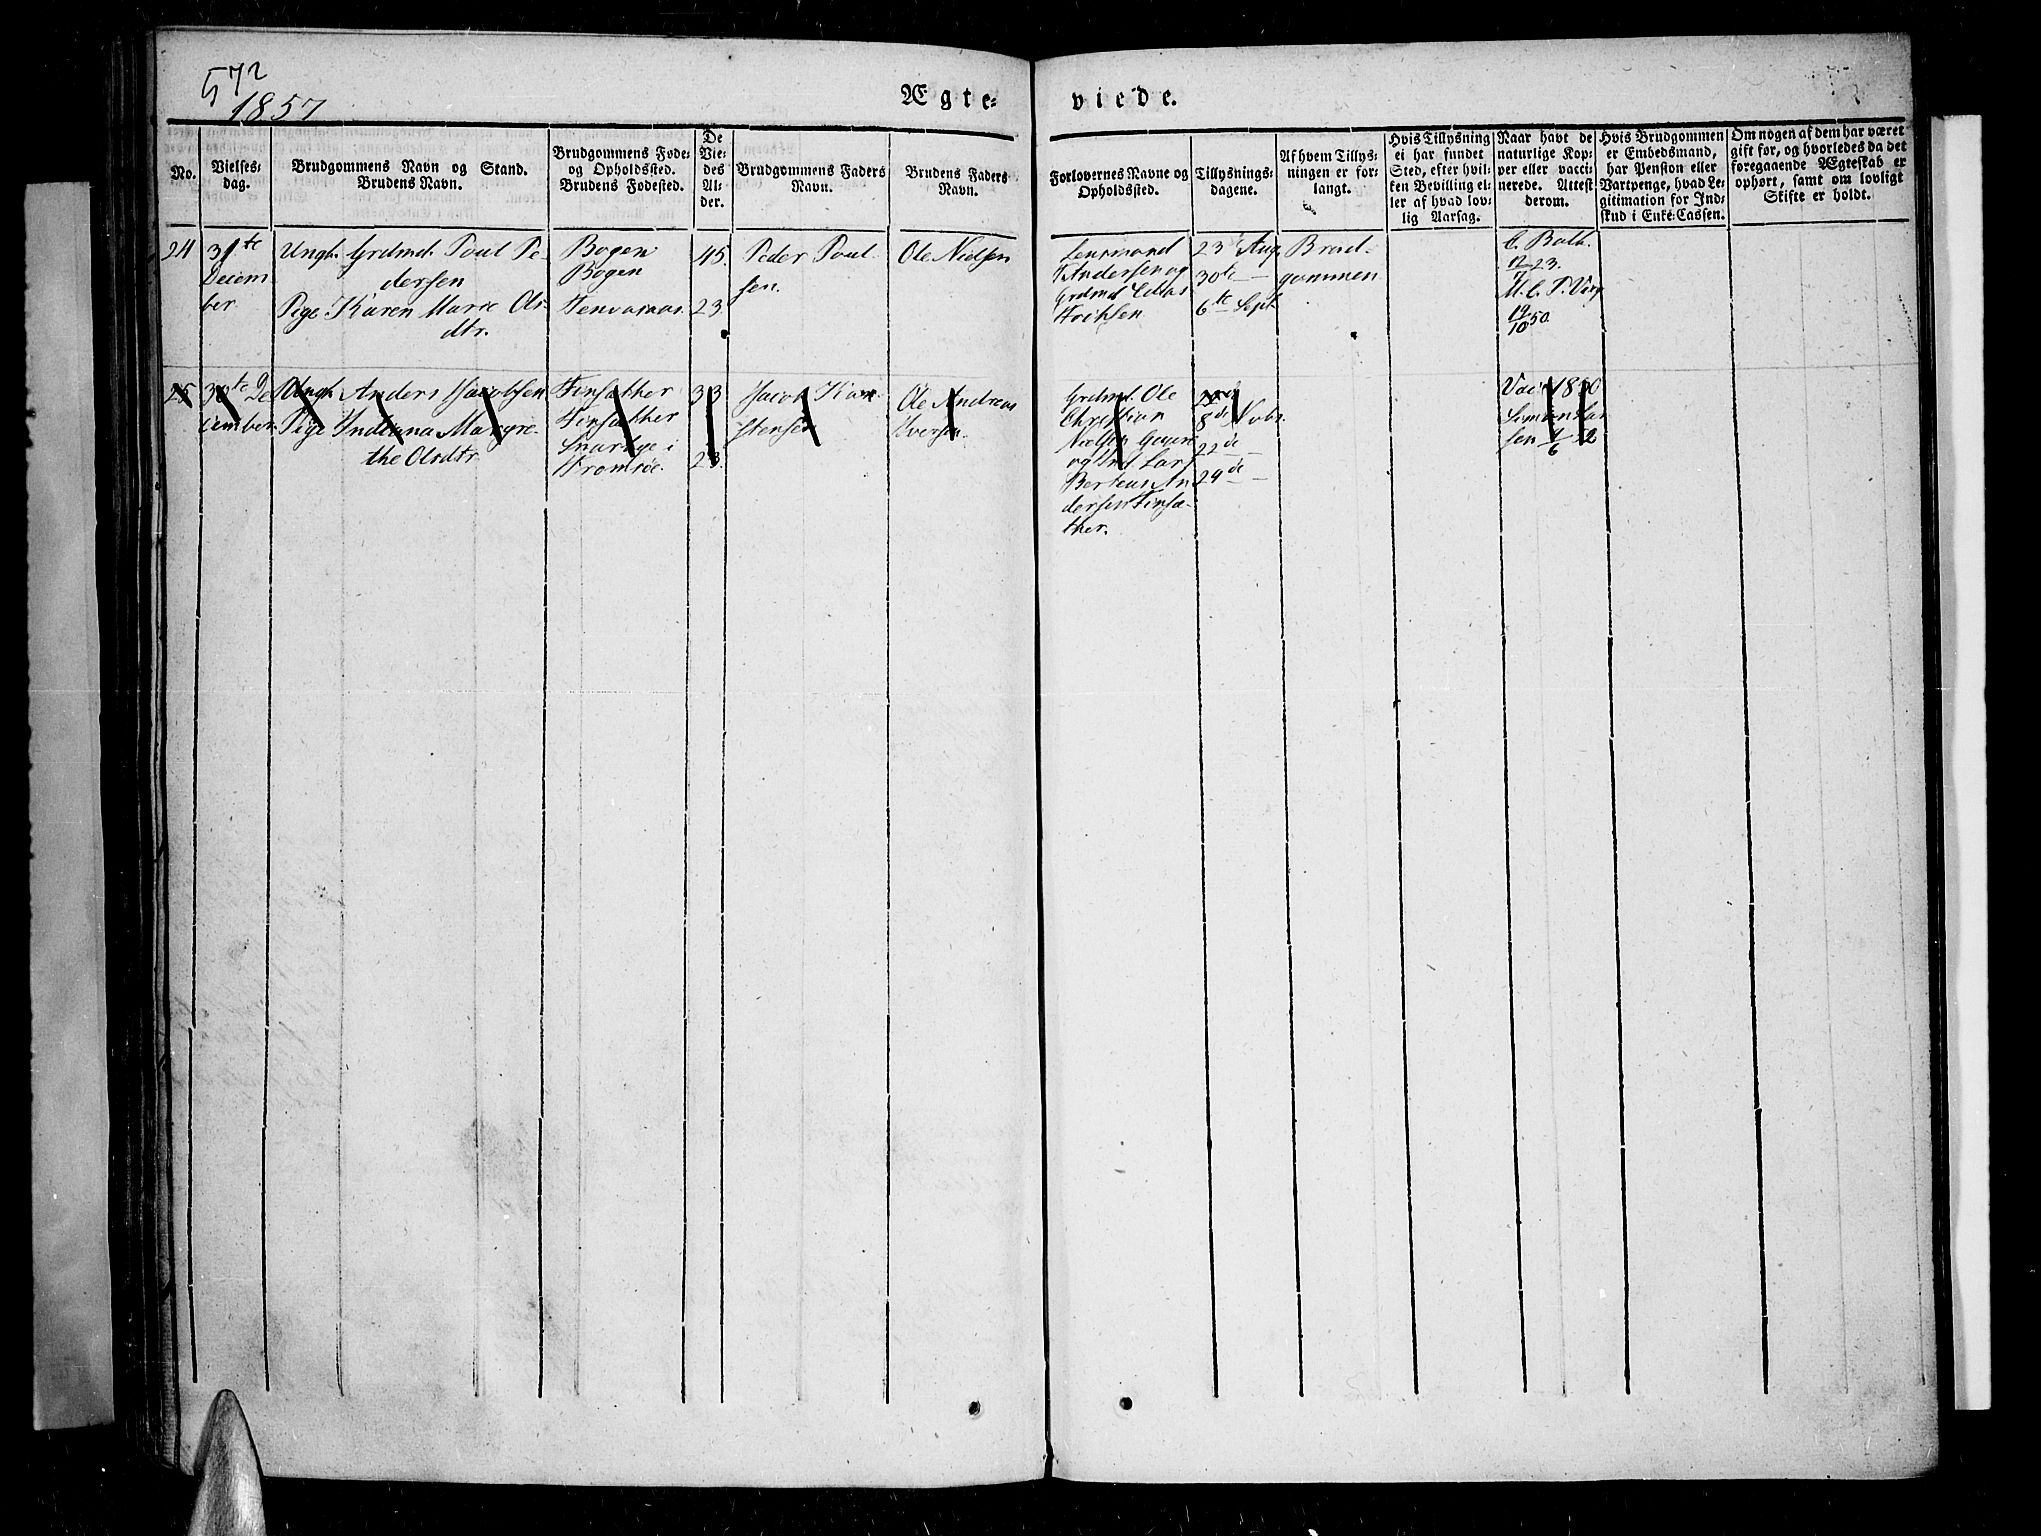 572
1857
Ægte- viede.
No.
Vielses-
dag.
Brudgommens Navn og Stand.
Brudens Navn.
Brudgommens Føde-
og Opholdssted.
Brudens Fødested.
De
Vie-
des
Al-
der.
Brudgommens Faders
Navn.
Brudens Faders
Navn.
Forlovernes Navne og
Opholdssted.
Tillysnings-
dagene.
Af hvem Tillys-
ningen er for-
langt.
Hvis Tillysning
ei har fundet
Sted, efter hvil-
ken Bevilling el-
ler af hvad lov-
lig Aarsag.
Naar havt de
naturlige Kop-
per eller vacci-
nerede. Attest
derom.
Hvis Brudgommen
er Embedsmand,
har Pension eller
Vartpenge, hvad Le-
gitimation for Ind-
skud i Enke-Cassen.
Om nogen af dem har været
gift før, og hvorledes da det
foregaaende Ægteskab er
ophørt, samt om lovligt
Skifte er holdt.
24
31te
Decem
ber.
Ungk. Grdmd. Poul Pe-
dersen
Pige Karen Marie Ols
dtr.
Bogen
Bogen
45.
23
Peder Poul-
sen.
Ole Nielsen
Lensmand
Andersen og
Grdmd
23 Aug.
30te —
6te Sept.
Brud-
gommen
C. Balk.
17
11 23.
M. C. P.
19
10 50
25
30te De
cember.
Ungk. Anders Jacobsen
Pige Indiana Margre-
the Olsdtr.
Finsæther
Finsæther
i
Tromsøe.
33
23.
Jacob
stensen
Ole Andreas
Iversen.
Grdmd. Ole
Christian
Nielsen
og Ind. Lars
Berteus An
dersen Finsæ-
ther.
8de Nvbr.
22de —
29de —
Vac. 1830
Simon Lar
sen